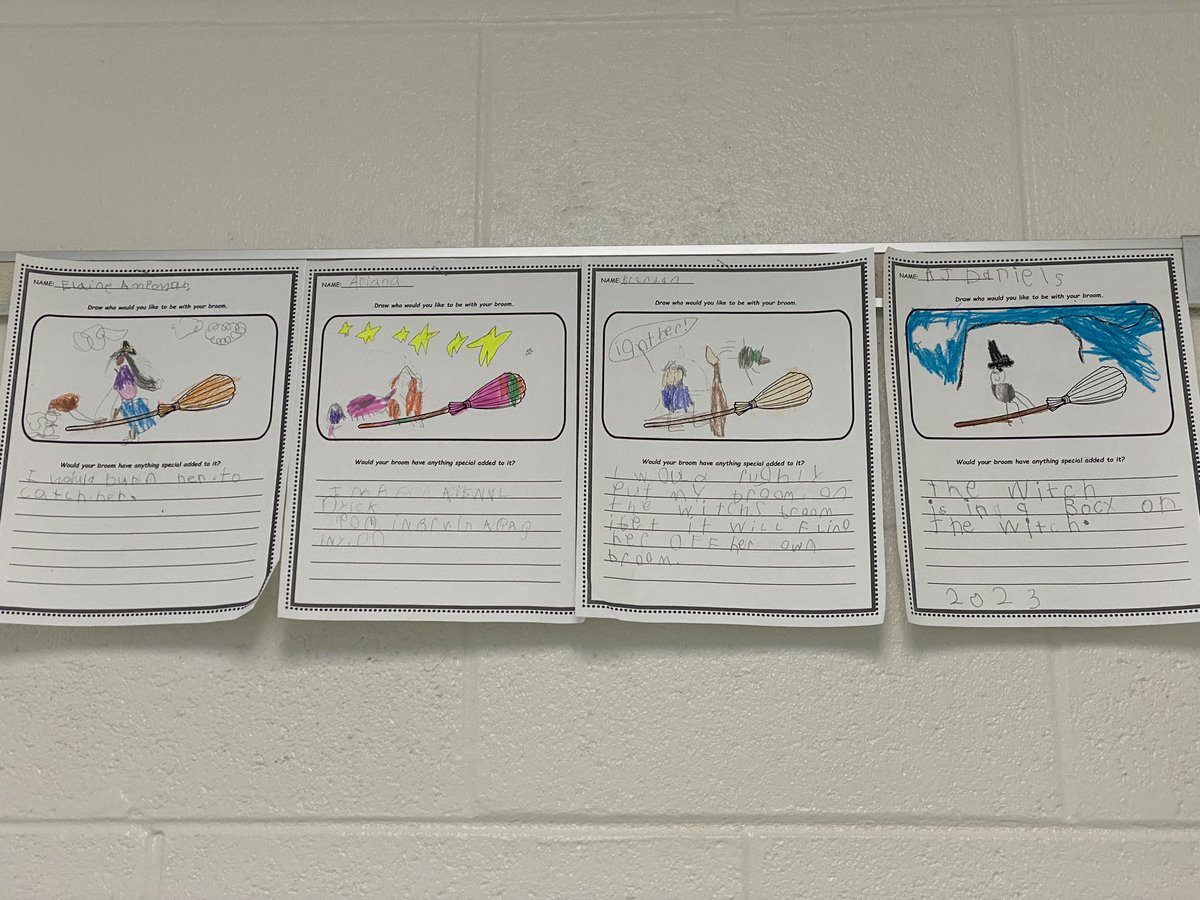 NAME: Elaine
Draw who would you like to be with your broom.
Would your broom have anything special added to it?
I would burn her to
catch her.
NAME: Ariana
Draw who would you like to be with your broom.
Would your broom have anything special added to it?
NAME: Brandon
Draw who would you like to be with your broom.
igother!
Would your broom have anything special added to it?
I would
put my broom on
the witchs broom
it will fling
her off her own
broom.
NAME: AJ Daniels
Draw who would you like to be with your broom.
Would your broom have anything special added to it?
the witch
is in a Bocx on
the witch.
2023